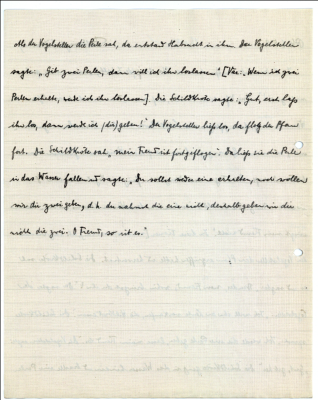 Als der Vogelsteller die Perle sah, da entstand Habsucht in ihm. Der Vogelsteller
sagte: „Gib zwei Perlen, dann will ich ihn loslassen." [Var.: Wenn ich zwei
Perlen erhalte, werde ich ihn loslassen]. Die Schildkröte sagte: „Gut, erst lass
ihn los, dann werde ich (dir) geben!" Der Vogelsteller liess los, da flog der Pfau
fort. Die Schildkröte sah, „mein Freund ist fortgeflogen". Da liess sie die Perle
in das Wasser fallen und sagte: „Du solltest eine erhalten, noch wollten
wir dir zwei geben, d.h. du nahmst die eine nicht, deshalb geben wir dir
nicht die zwei. O Freund, so ist es."